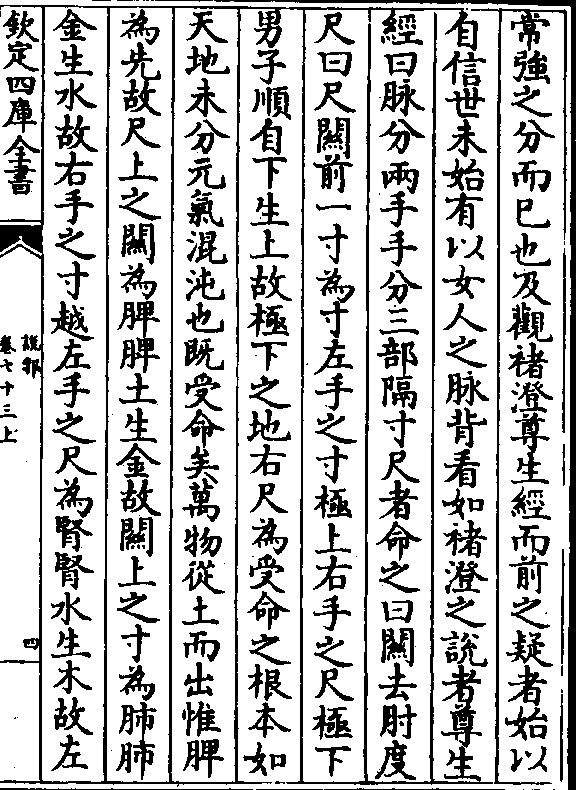 常強之分而巳也及觀褚澄尊生經而前之疑者始以
自信世未始有以女人之脉背看如褚澄之說者尊生
經曰脉分兩手手分三部隔寸尺者命之曰關去肘度
尺曰尺關前一寸為寸左手之寸極上右手之尺極下
男子順自下生上故極下之地右尺為受命之根本如
天地未分元氣混沌也既受命矣萬物從土而出惟脾
為先故尺上之關為脾脾土生金故關上之寸為肺肺
金生水故右手之寸越左手之尺為腎腎水生木故左
欽定四庫全書
說郛
卷七十三上
四